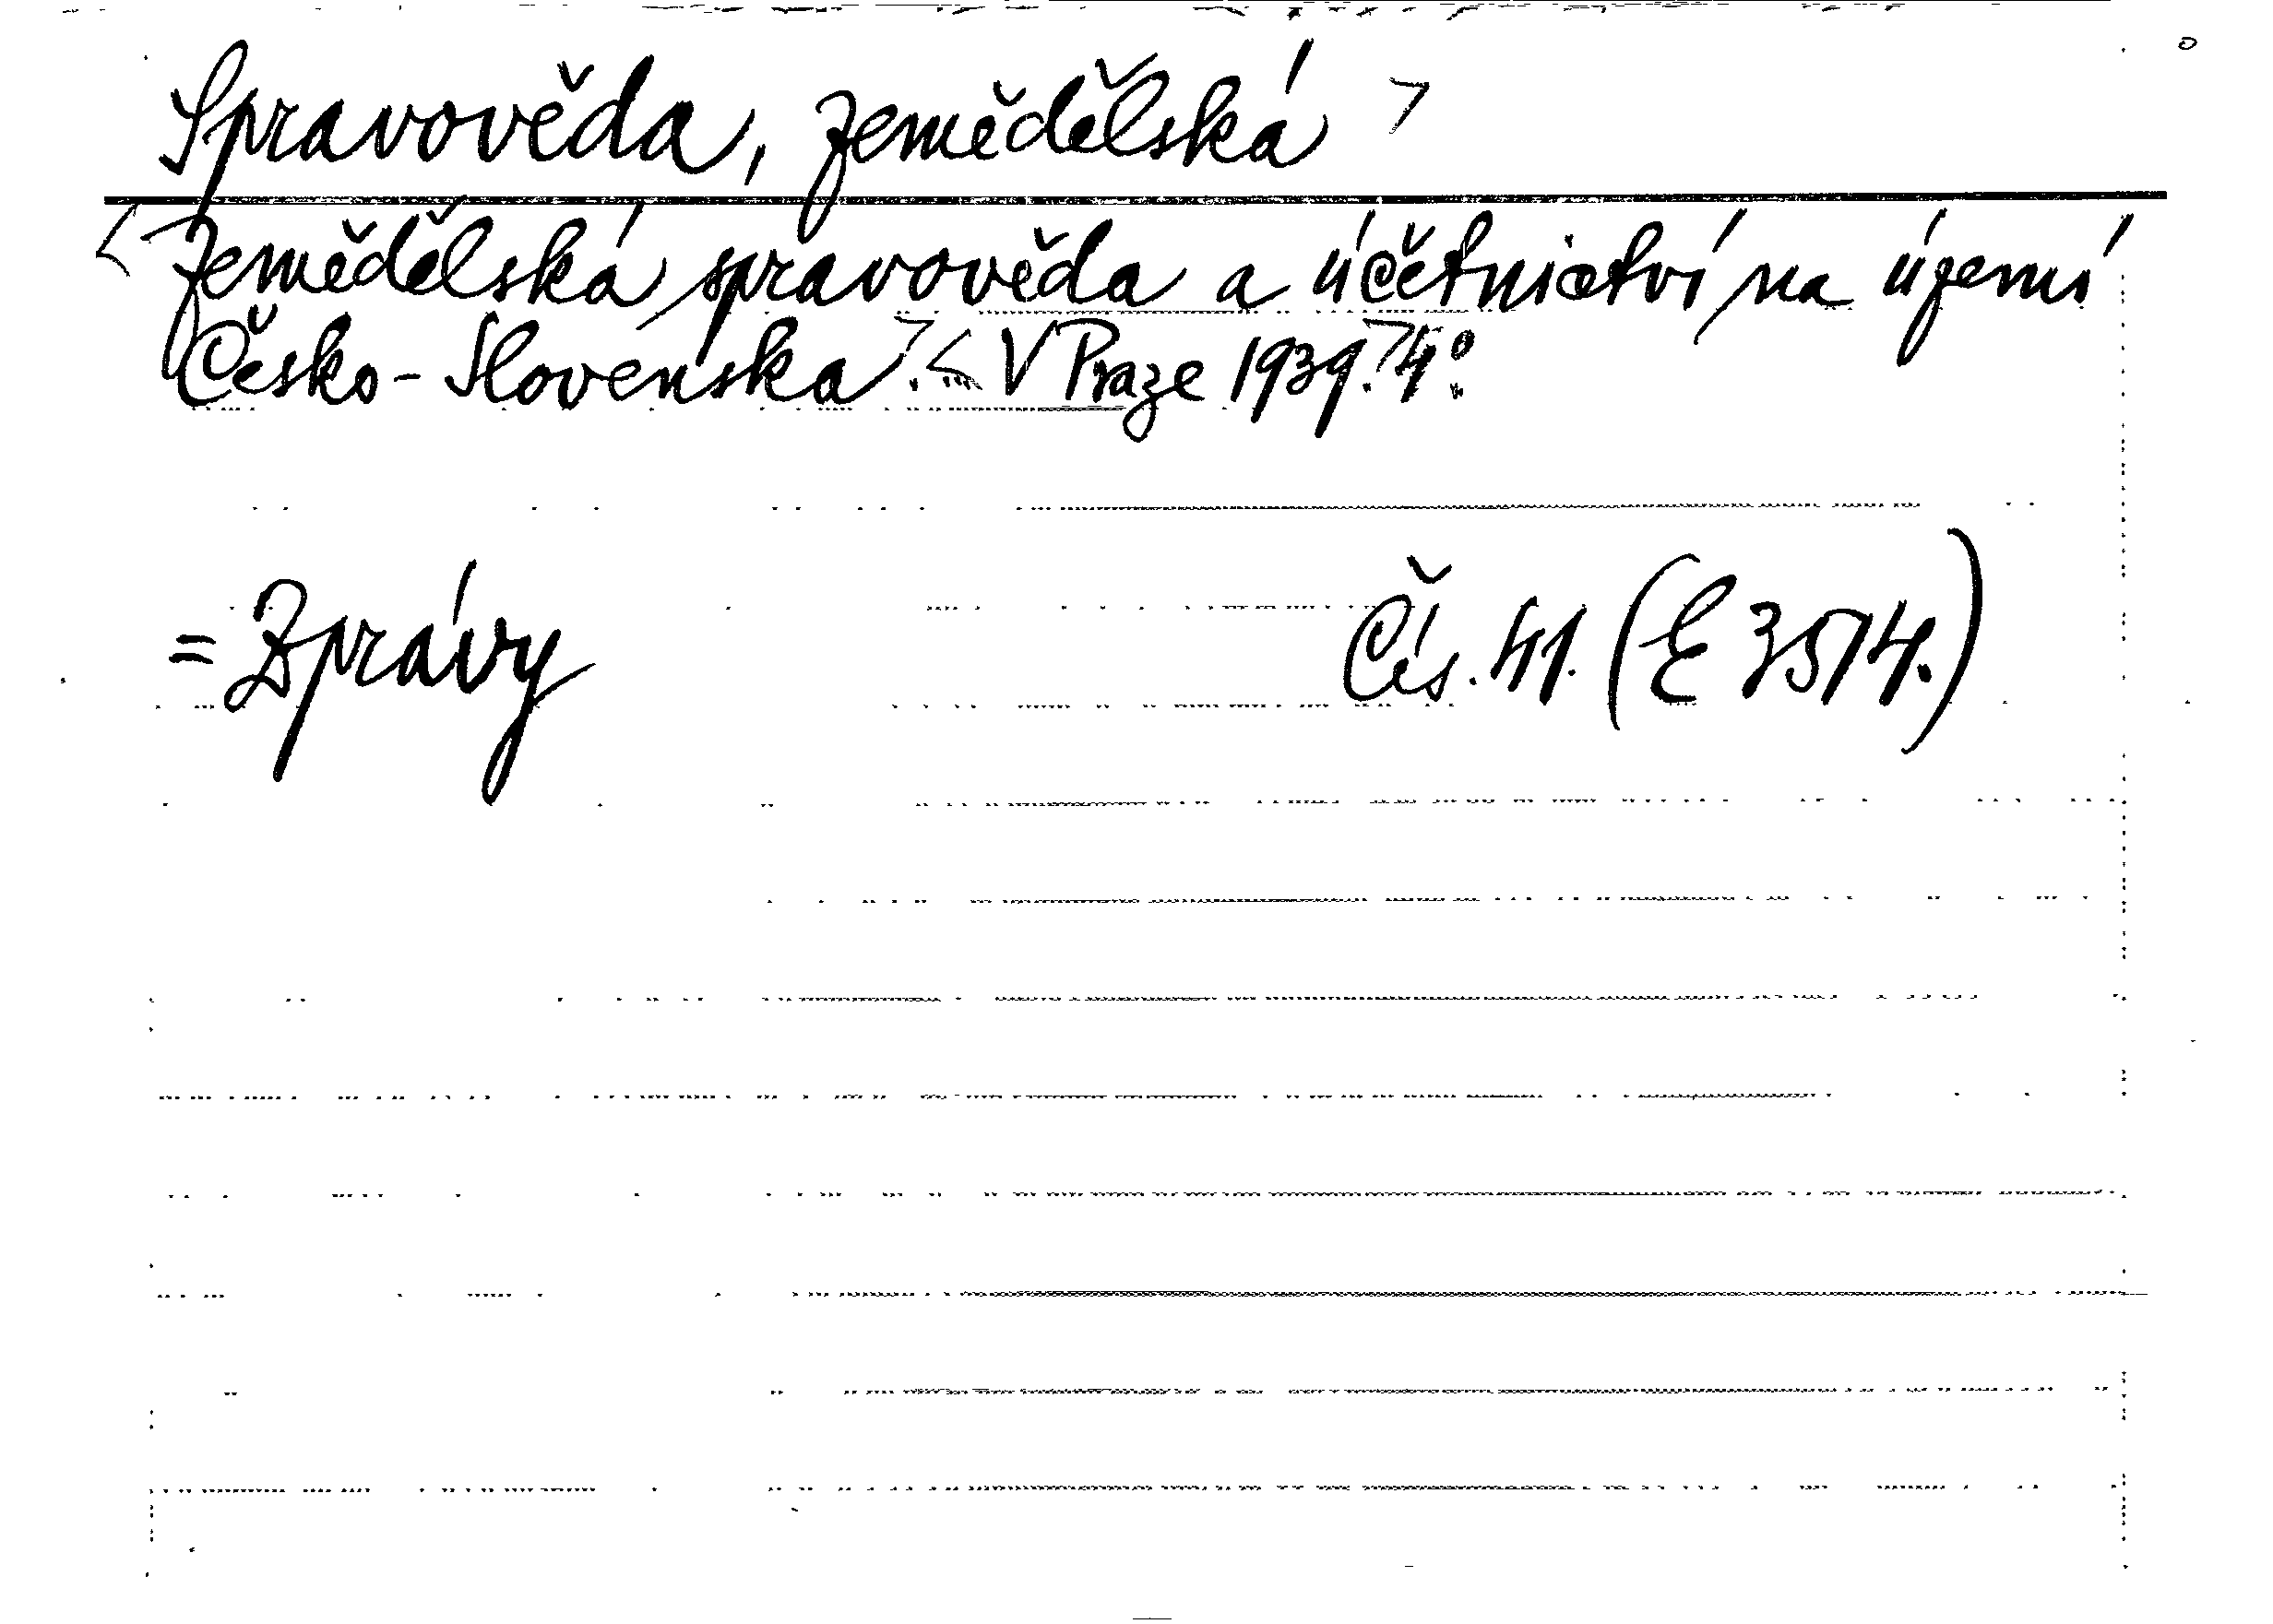 Spravověda, zemědělská >
<Zemědělská spravověda a účetnictví na území
Česko-Slovenska>. <V Praze 1939.> 4°.
= Zprávy Čís. 41. (E 3514.)